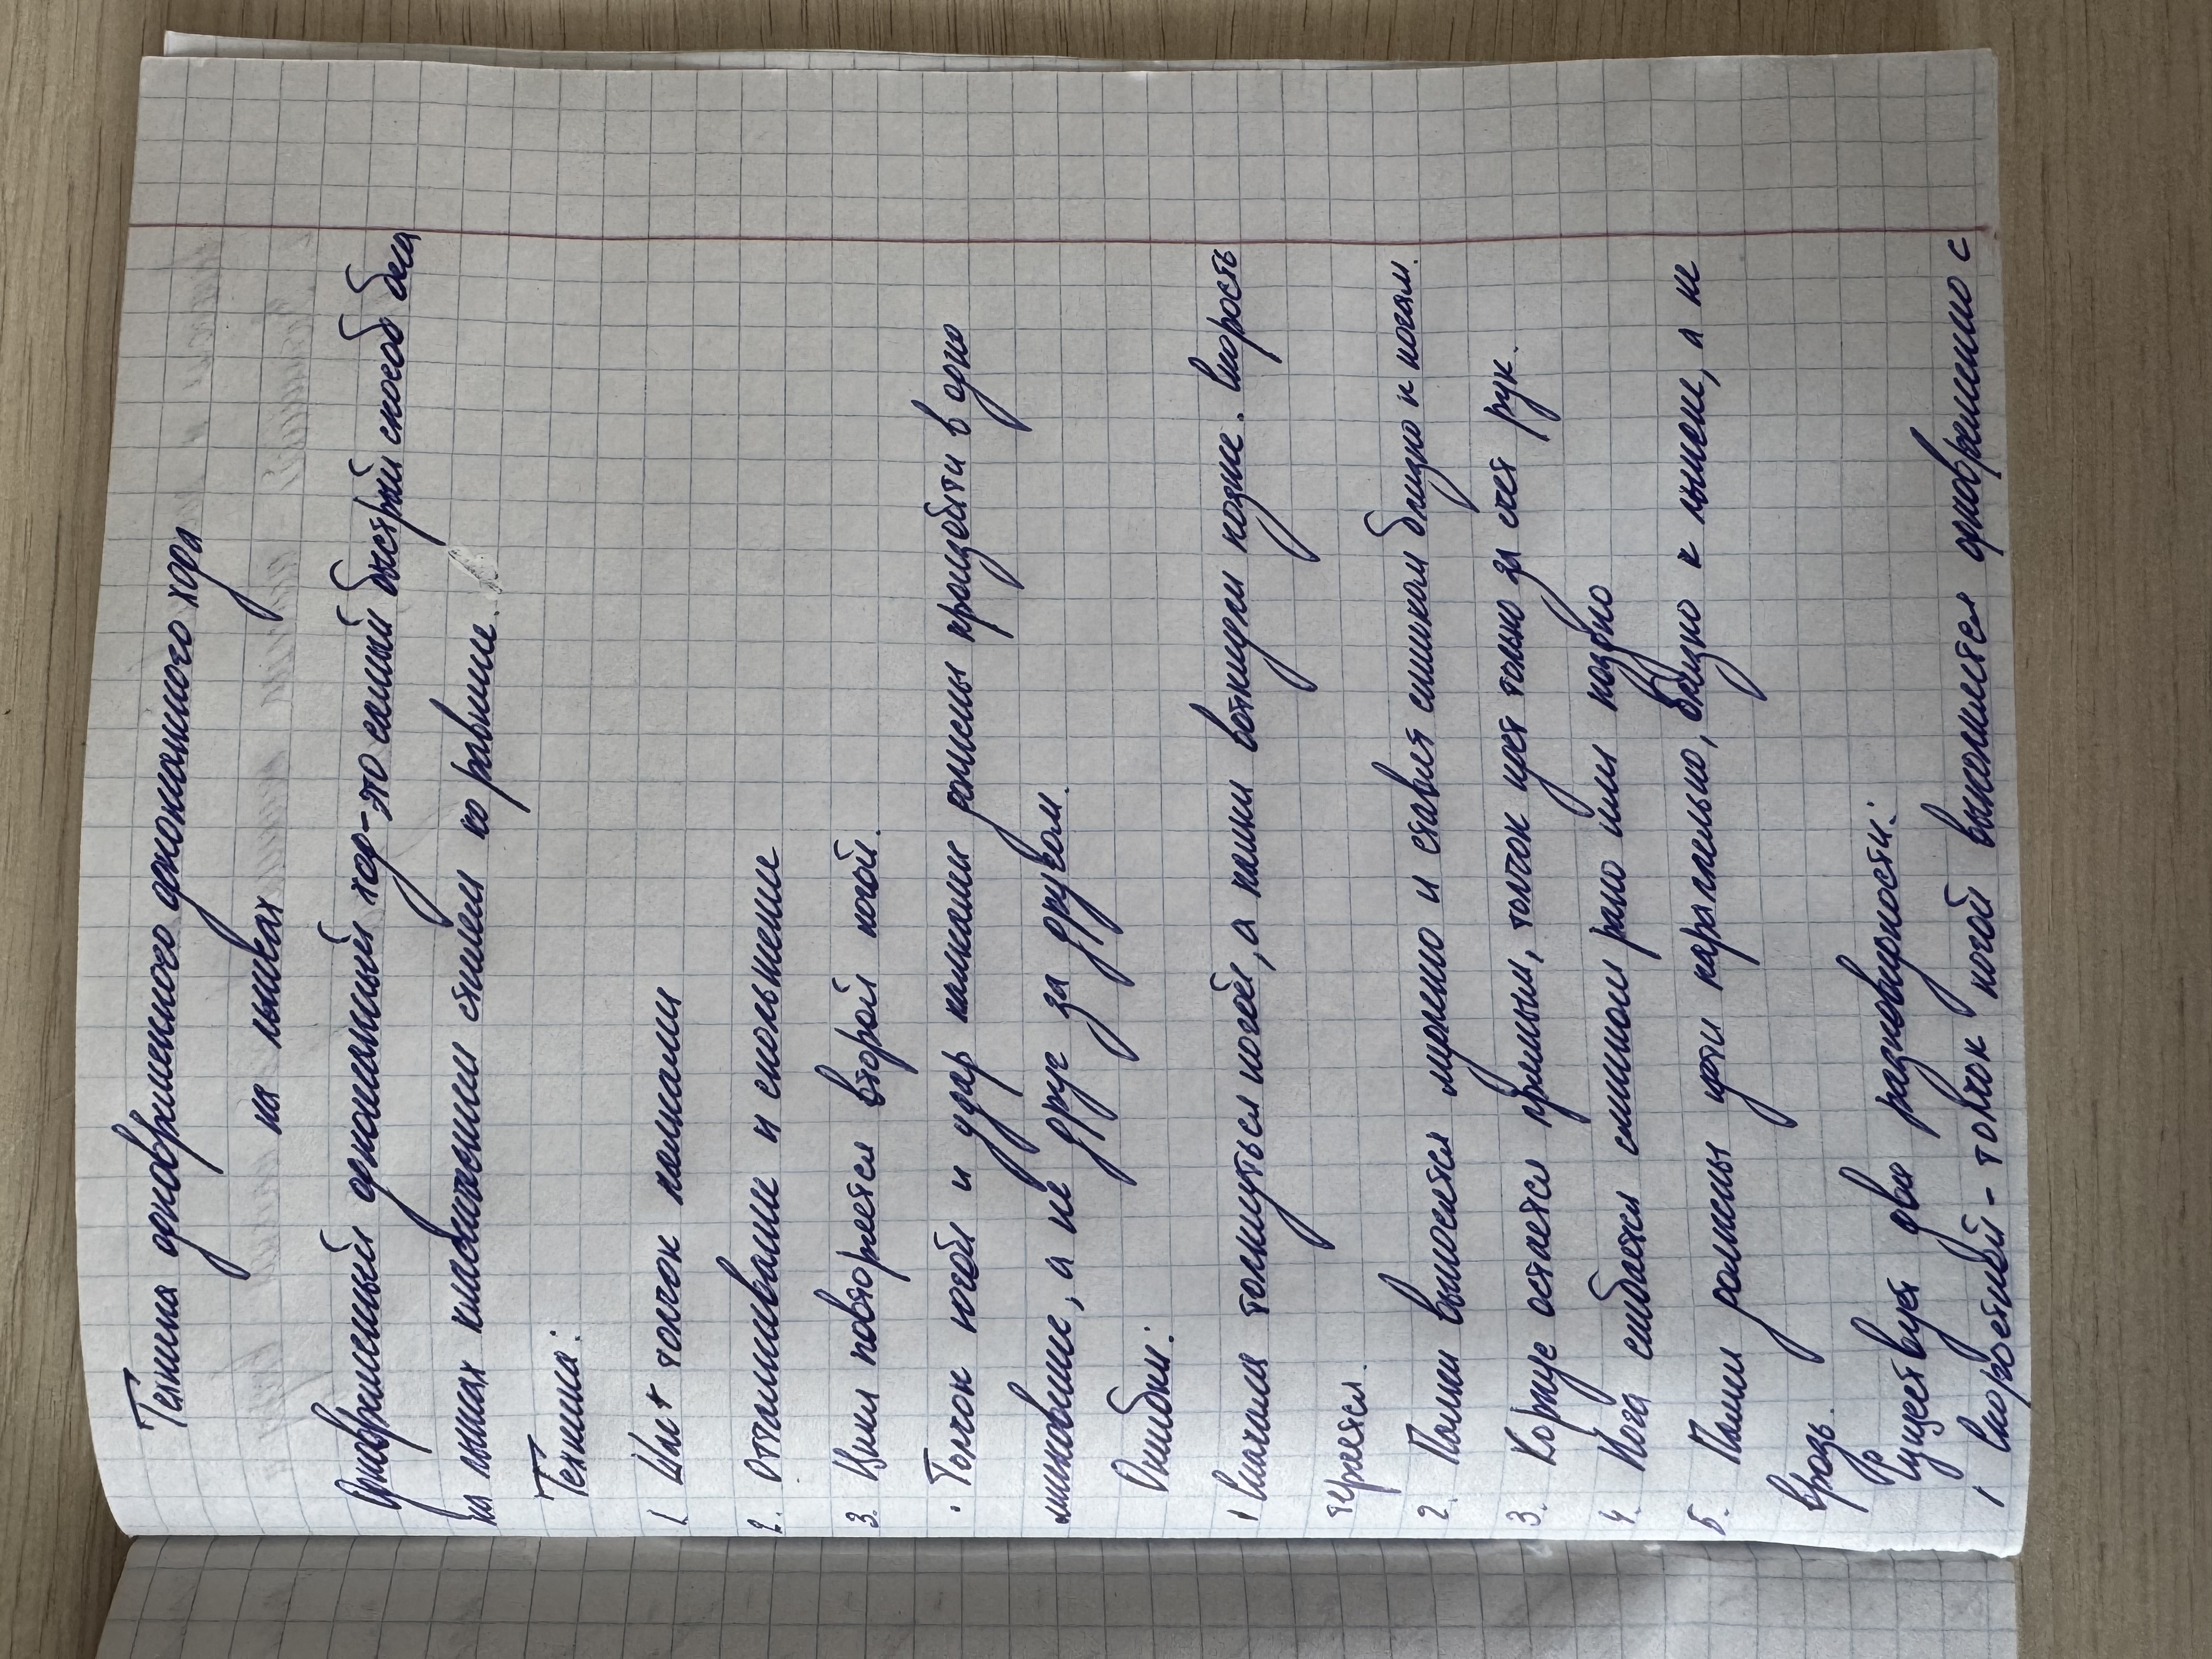 Техника одновременного одношажного хода
на лыжах
Одновременный одношажный ход-это самый быстрый способ бега
на лыжах классическим стилем по равнине.
Техника:
1. Шаг + толчок палками
2. Отталкивание и скольжение
3. Цикл повторяется второй ногой.
· Толчок ногой и удар палками должны произойти в одно
мгновение, а не друг за другом.
Ошибки:
1 Сначала толкнуться ногой, а палки воткнули позже. Скорость
теряется.
2. Палки выносятся мужено и ставят слишком близко к ногам.
3. Корпус остается прямым, толчок идет только за счет рук.
4. Нога сгибается слишком рано или поздно
5. Палки должны идти параллельно, близко к лыжне, а не
врозь.
Существует две разновидности:
1 Скоростной - толчок ногой выполняется одновременно с